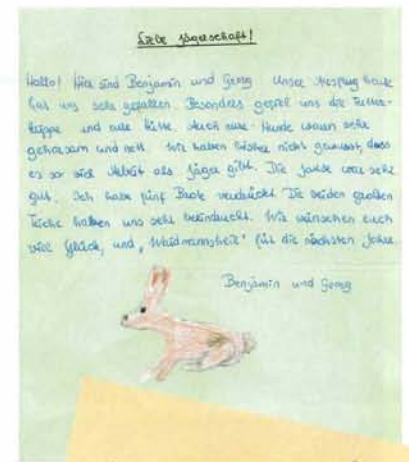 Liebe Jägerschaft!
Hallo! Hier sind Benjamin und Georg. Unser Ausflug heute
hat uns sehr gefallen. Besonders gefiel uns die Futter-
krippe und eure Hütte. Auch eure Hunde waren sehr
gehorsam und nett. Wir haben bisher nicht gewusst, dass
es so viel Arbeit als Jäger gibt. Die Jause war sehr
gut. Ich habe fünf Brote verdrückt. Die beiden großen
Teiche haben uns sehr beeindruckt. Wir wünschen euch
viel Glück, und „Waidmannsheil" für die nächsten Jahre.
Benjamin und Georg